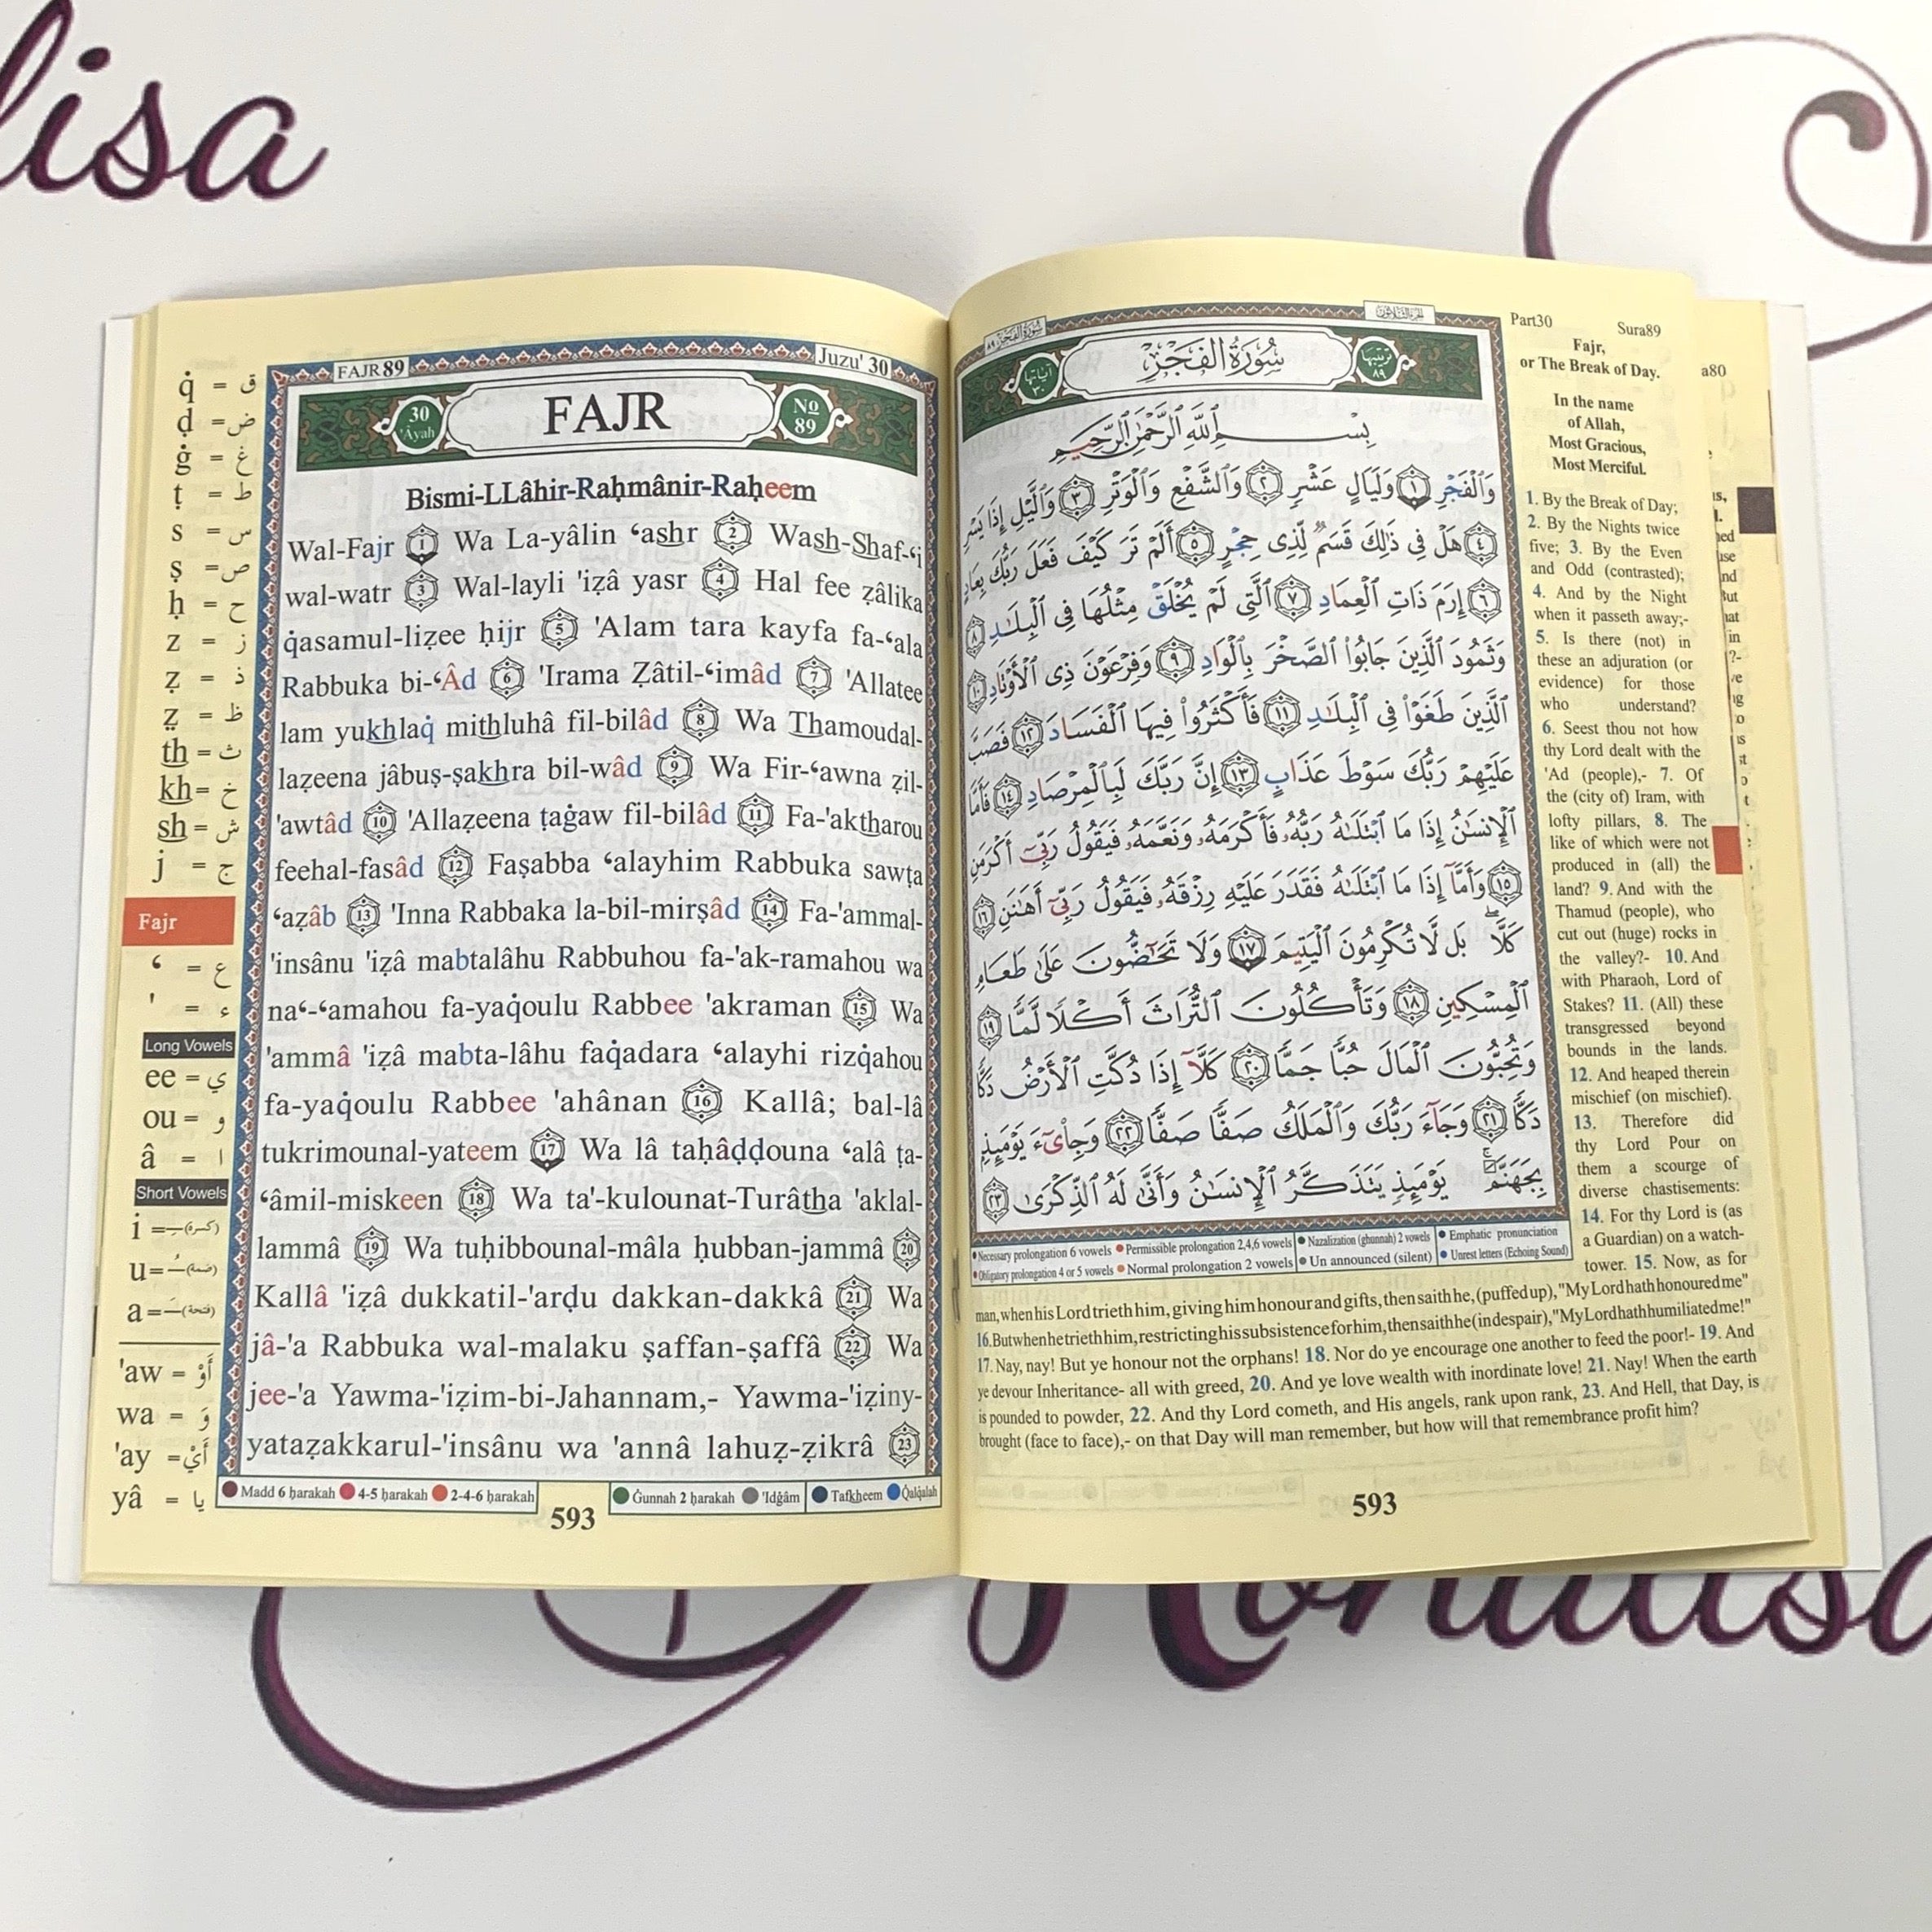 lisa
FAJR 89
Juzu' 30
30
'Âyah
FAJR
No
89
Bismi-LLâhir-Raḥmânir-Raḥeem
Wal-Fajr 1 Wa La-yâlin ‘ashr 2 Wash-Shaf-‘i
wal-watr 3 Wal-layli 'iẓâ yasr 4 Hal fee ẓâlika
q̇asamul-liẓee ḥijr 5 'Alam tara kayfa fa-‘ala
Rabbuka bi-‘Âd 6 'Irama Ẓâtil-‘imâd 7 'Allatee
lam yukhlaq̇ mithluhâ fil-bilâd 8 Wa Thamoudal-
laẓeena jâbuṣ-ṣakhra bil-wâd 9 Wa Fir-‘awna ẓil-
'awtâd 10 'Allaẓeena ṭaġaw fil-bilâd 11 Fa-'aktharou
feehal-fasâd 12 Faṣabba ‘alayhim Rabbuka sawṭa
‘aẓâb 13 'Inna Rabbaka la-bil-mirṣâd 14 Fa-'ammal-
'insânu 'iẓâ mabtalâhu Rabbuhou fa-'ak-ramahou wa
na‘-‘amahou fa-yaq̇oulu Rabbee 'akraman 15 Wa
'ammâ 'iẓâ mabta-lâhu faq̇adara ‘alayhi rizq̇ahou
fa-yaq̇oulu Rabbee 'ahânan 16 Kallâ; bal-lâ
tukrimounal-yateem 17 Wa lâ taḥâḍḍouna ‘alâ ṭa-
‘âmil-miskeen 18 Wa ta'-kulounat-Turâtha 'aklal-
lammâ 19 Wa tuḥibbounal-mâla ḥubban-jammâ 20
Kallâ 'iẓâ dukkatil-'arḍu dakkan-dakkâ 21 Wa
jâ-'a Rabbuka wal-malaku ṣaffan-ṣaffâ 22 Wa
jee-'a Yawma-'iẓim-bi-Jahannam,- Yawma-'iẓiny-
yataẓakkarul-'insânu wa 'annâ lahuẓ-ẓikrâ 23
q̇ = ق
ḍ = ض
ġ = غ
ṭ = ط
s = س
ṣ = ص
ḥ = ح
z = ز
ẓ = ذ
ẓ̤ = ظ
th = ث
kh = خ
sh = ش
j = ج
Fajr
‘ = ع
' = ء
Long Vowels
ee = ي
ou = و
â = ا
Short Vowels
i = (كسرة)
u = (ضمة)
a = (فتحة)
'aw = أَوْ
wa = وَ
'ay = أَيْ
yâ = يا
Madd 6 ḥarakah 4-5 ḥarakah 2-4-6 ḥarakah
Ġunnah 2 ḥarakah 'Idġâm Tafkheem Q̇alq̇alah
593
سُورَةُ الفَجْرِ ٨٩
الجزء الثلاثون
آياتها
٣٠
سُورَةُ الفَجْرِ
ترتيبها
٨٩
بِسْمِ اللَّهِ الرَّحْمَٰنِ الرَّحِيمِ
وَالْفَجْرِ ١ وَلَيَالٍ عَشْرٍ ٢ وَالشَّفْعِ وَالْوَتْرِ ٣ وَاللَّيْلِ إِذَا يَسْرِ
٤ هَلْ فِي ذَٰلِكَ قَسَمٌ لِّذِي حِجْرٍ ٥ أَلَمْ تَرَ كَيْفَ فَعَلَ رَبُّكَ بِعَادٍ
٦ إِرَمَ ذَاتِ الْعِمَادِ ٧ الَّتِي لَمْ يُخْلَقْ مِثْلُهَا فِي الْبِلَٰدِ ٨
وَثَمُودَ الَّذِينَ جَابُوا الصَّخْرَ بِالْوَادِ ٩ وَفِرْعَوْنَ ذِي الْأَوْتَادِ ١٠
الَّذِينَ طَغَوْا فِي الْبِلَٰدِ ١١ فَأَكْثَرُوا فِيهَا الْفَسَادَ ١٢ فَصَبَّ
عَلَيْهِمْ رَبُّكَ سَوْطَ عَذَابٍ ١٣ إِنَّ رَبَّكَ لَبِالْمِرْصَادِ ١٤ فَأَمَّا
الْإِنسَٰنُ إِذَا مَا ابْتَلَىٰهُ رَبُّهُۥ فَأَكْرَمَهُۥ وَنَعَّمَهُۥ فَيَقُولُ رَبِّي أَكْرَمَنِ
١٥ وَأَمَّا إِذَا مَا ابْتَلَىٰهُ فَقَدَرَ عَلَيْهِ رِزْقَهُۥ فَيَقُولُ رَبِّي أَهَٰنَنِ ١٦
كَلَّا ۖ بَل لَّا تُكْرِمُونَ الْيَتِيمَ ١٧ وَلَا تَحَٰضُّونَ عَلَىٰ طَعَامِ
الْمِسْكِينِ ١٨ وَتَأْكُلُونَ التُّرَاثَ أَكْلًا لَّمًّا ١٩
وَتُحِبُّونَ الْمَالَ حُبًّا جَمًّا ٢٠ كَلَّا إِذَا دُكَّتِ الْأَرْضُ دَكًّا
دَكًّا ٢١ وَجَاءَ رَبُّكَ وَالْمَلَكُ صَفًّا صَفًّا ٢٢ وَجِا۟يٓءَ يَوْمَئِذٍ
بِجَهَنَّمَ ۚ يَوْمَئِذٍ يَتَذَكَّرُ الْإِنسَٰنُ وَأَنَّىٰ لَهُ الذِّكْرَىٰ ٢٣
Necessary prolongation 6 vowels Permissible prolongation 2,4,6 vowels Nazalization (ghunnah) 2 vowels Emphatic pronunciation
Obligatory prolongation 4 or 5 vowels Normal prolongation 2 vowels Un announced (silent) Unrest letters (Echoing Sound)
Part30 Sura89
Fajr,
or The Break of Day.
In the name
of Allah,
Most Gracious,
Most Merciful.
1. By the Break of Day;
2. By the Nights twice
five; 3. By the Even
and Odd (contrasted);
4. And by the Night
when it passeth away;-
5. Is there (not) in
these an adjuration (or
evidence) for those
who understand?
6. Seest thou not how
thy Lord dealt with the
'Ad (people),- 7. Of
the (city of) Iram, with
lofty pillars, 8. The
like of which were not
produced in (all) the
land? 9. And with the
Thamud (people), who
cut out (huge) rocks in
the valley?- 10. And
with Pharaoh, Lord of
Stakes? 11. (All) these
transgressed beyond
bounds in the lands.
12. And heaped therein
mischief (on mischief).
13. Therefore did
thy Lord Pour on
them a scourge of
diverse chastisements:
14. For thy Lord is (as
a Guardian) on a watch-
tower. 15. Now, as for
man, when his Lord trieth him, giving him honour and gifts, then saith he, (puffed up), "My Lord hath honoured me"
16. But when he trieth him, restricting his subsistence for him, then saith he (in despair), "My Lord hath humiliated me!"
17. Nay, nay! But ye honour not the orphans! 18. Nor do ye encourage one another to feed the poor!- 19. And
ye devour Inheritance- all with greed, 20. And ye love wealth with inordinate love! 21. Nay! When the earth
is pounded to powder, 22. And thy Lord cometh, and His angels, rank upon rank, 23. And Hell, that Day, is
brought (face to face),- on that Day will man remember, but how will that remembrance profit him?
593
a80